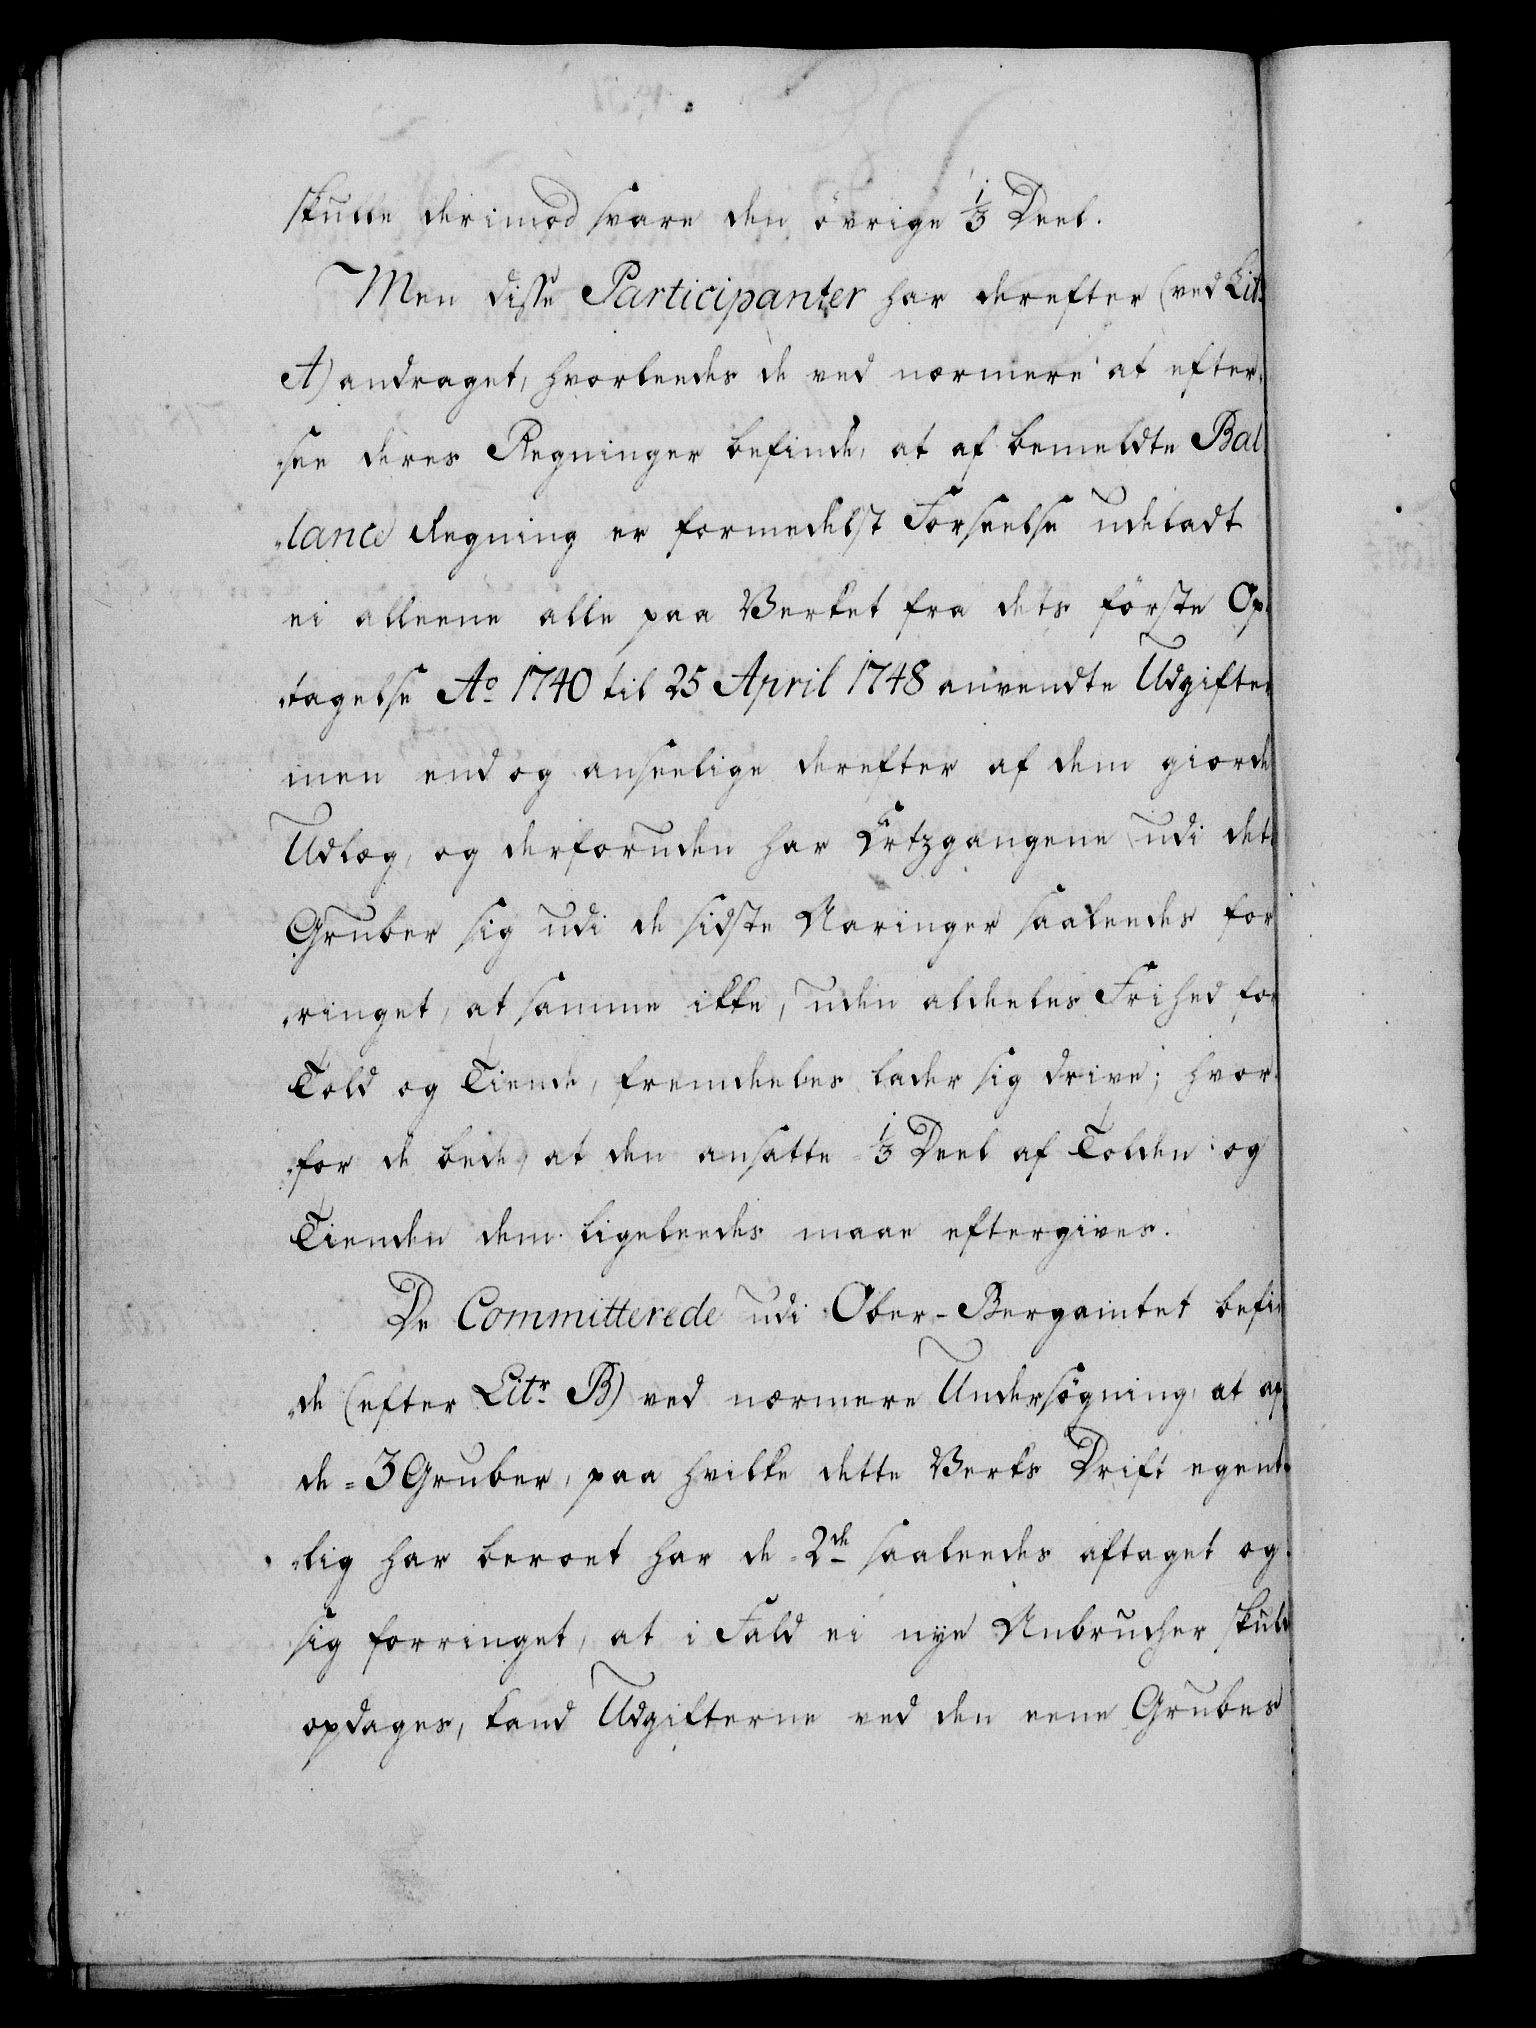 skulle derimod svare den övrige 1/3 Deel.
Men disse Participanter har derefter (ved Litr
A) andraget, hvorleedes de ved nærmere at efter-
see deres Regninger befinde, at af bemeldte Bal-
lance Regning er formedelst Forseelse udeladt
ei alleene alle paa Verket fra dets förste Op-
tagelse Ao 1740 til 25 April 1748 anvendte Udgifter
men end og anseelige derefter af dem giorde
Udlæg, og derforuden har Ertzgangene udi dets
Gruber sig udi de sidste Aaringer saaleedes for-
ringet, at samme ikke, uden aldeeles Frihed for
Told og Tiende, fremdeeles lader sig drive; hvor-
for de bede, at den ansatte 1/3 Deel af Tolden og
Tienden dem ligeleedes maae eftergives.
De Committerede udi Ober-Bergamtet befin-
de (efter Litr B) ved nærmere Undersögning, at af
de 3 Gruber, paa hvilke dette Verks Drift egent-
lig har beroet har de 2de saaleedes aftaget og
sig forringet, at i Fald ei nye Anbrucher skulde
opdages, kand Udgifterne ved den eene Grubes